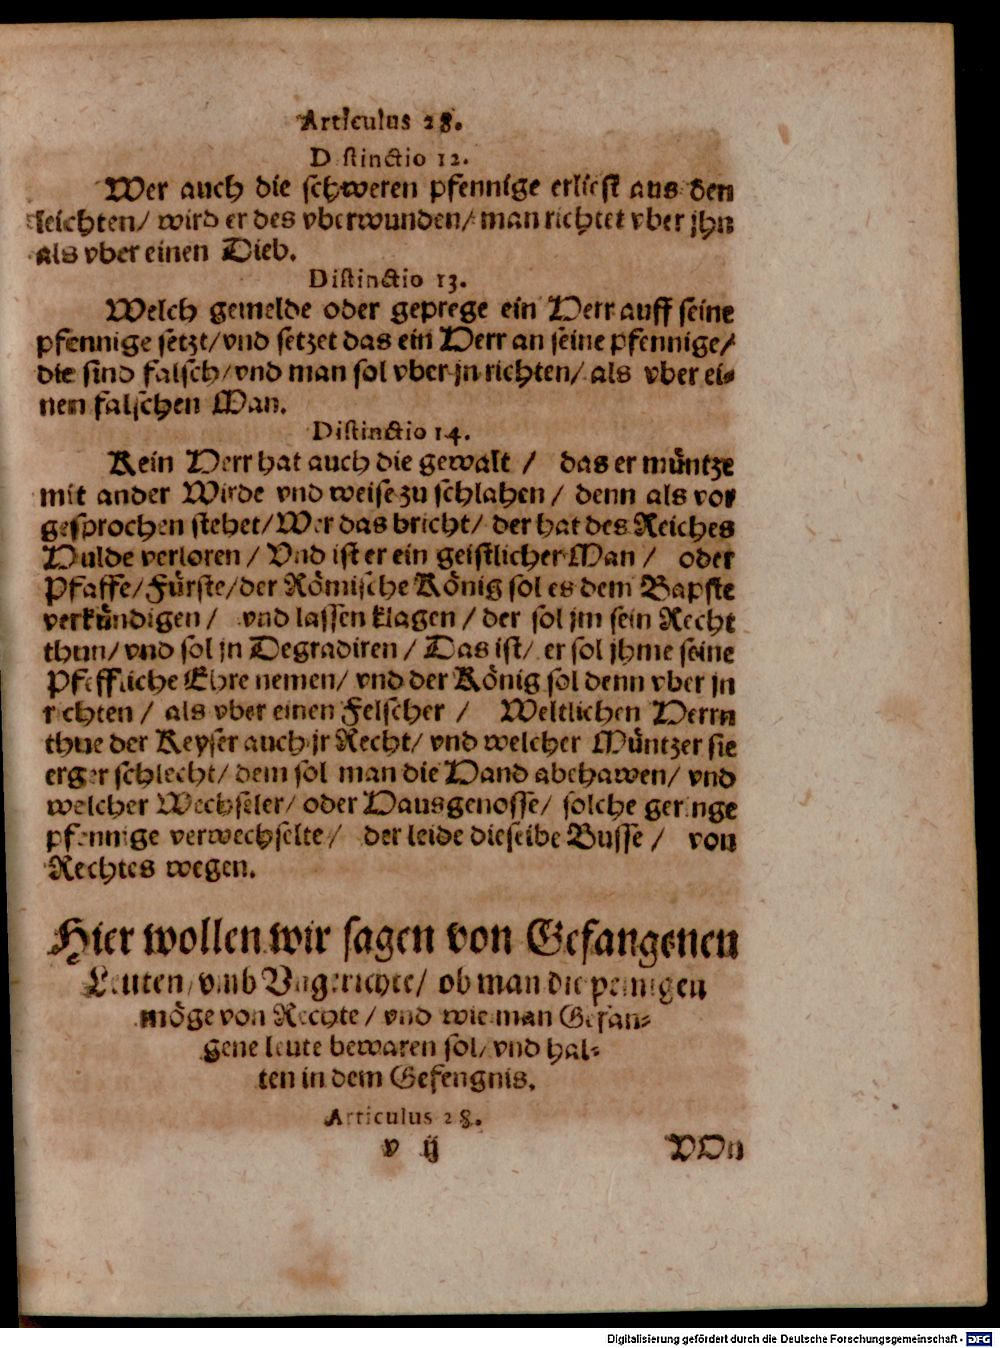 Articulus 28.
Distinctio 12.
Wer auch die schweren pfennige erliest aus den
leichten/ wird er des vberwunden/ man richtet vber jhn
als vber einen Dieb.
Distinctio 13.
Welch gemelde oder geprege ein Herr auff seine
pfennige setzt/ vnd setzet das ein Herr an seine pfennige/
die sind falsch/ vnd man sol vber jn richten/ als vber ei⸗
nen falschen Man.
Distinctio 14.
Kein Herr hat auch die gewalt / das er müntze
mit ander Wirde vnd weise zu schlahen / denn als vor
gesprochen stehet/ Wer das bricht/ der hat des Reiches
Hulde verloren / Vnd ist er ein geistlicher Man / oder
Pfaffe/ Fürste/ der Römische König sol es dem Bapste
verkündigen / vnd lassen klagen / der sol jm sein Recht
thun/ vnd sol jn Degradiren / Das ist/ er sol jhme seine
Pfeffliche Ehre nemen/ vnd der König sol denn vber jn
richten / als vber einen Felscher / Weltlichen Herrn
thue der Keyser auch jr Recht/ vnd welcher Müntzer sie
erger schlecht/ dem sol man die Hand abehawen/ vnd
welcher Wechseler/ oder Hausgenosse/ solche geringe
pfennige verwechselte/ der leide dieselbe Busse / von
Rechtes wegen.
Hier wollen wir sagen von Gefangenen
Leuten/ vmb Vngerichte/ ob man die peinigen
möge von Rechte / vnd wie man Gefan⸗
gene leute bewaren sol/ vnd hal⸗
ten in dem Gefengnis.
Articulus 28.
v ij
VOn
Digitalisierung gefördert durch die Deutsche Forschungsgemeinschaft - DFG